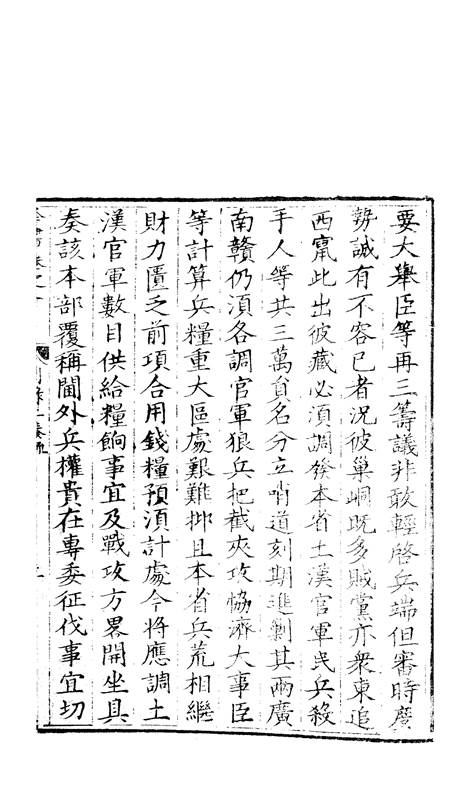 要大舉臣等再三籌議非敢輕啓兵端但審時度
勢誠有不容已者況彼巢峒既多賊黨亦衆東追
西竄此出彼藏必湏調發本省土漢官軍民兵殺
手人等共三萬貟名分立哨道刻期進剿其兩廣
南贛仍湏各調官軍狼兵把截夾攻恊濟大事臣
等計算兵糧重大區處艱難抑且本省兵荒相繼
財力匱乏前項合用錢糧預湏計處今將應調土
漢官軍數目供給糧餉事宜及戰攻方畧開坐具
奏該本部覆稱閫外兵權貴在專委征伐事宜切